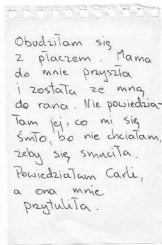 Obudziłam się
z płaczem. Mama
do mnie przyszła
i została ze mną
do rana. Nie powiedzia-
łam jej, co mi się
śniło, bo nie chciałam,
żeby się smuciła.
Powiedziałam Carli,
a ona mnie
przytuliła.